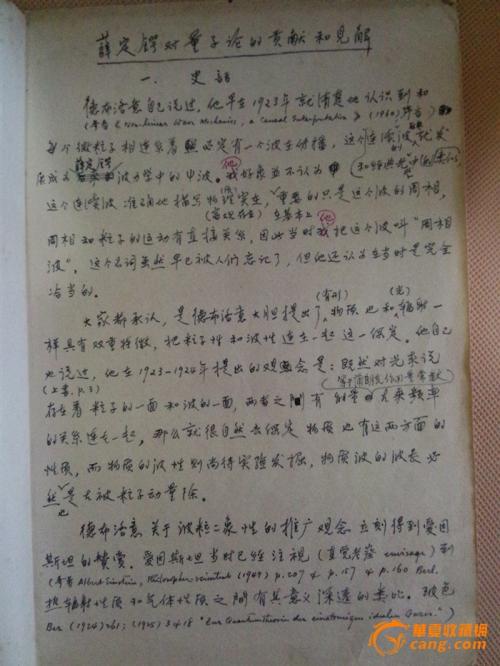 薛定谔对量子论的贡献和见解
一. 史话
德布洛意自己说过,他早在1923年就清楚地认识到和
(参看《Non-linear Wave Mechanics, a Causal Interpretation》(1960)序言)
每个微粒子相连系着必定有一个波在传播,这个连续波就发
展成为薛定谔波动学中的ψ波。他好象并不认为ψ(和经典光学中的
这个连续波准确地描写物理实在,重要的只是这个波的周相,
(客观存在)在基本上他
周相和粒子的运动有直接关系,因此当时我把这个波叫“周相
波”,这个名词虽然早已被人们忘记了,但他还认为在当时是完全
恰当的。
大家都承认,是德布洛意大胆提出了(有形)物质也和(光)辐射一
样具有双重特徵,把粒子性和波性连在一起这一假定。他自己
也说过,他在1923—1924年提出的观念是:既然对光来说
(上书,p.3)
存在着粒子的一面和波的一面,两者之间有能量
的关系连在一起,那么就很自然去假定物质也有这两方面的
性质,而物质的波性则尚待实验发掘,物质波的波长必
然也是h被粒子动量除。
德布洛意关于波粒二象性的推广观念立刻得到爱因
斯坦的赞赏。爱因斯坦当时已经注视(直觉考察 envisage)到
(参看 Albert Einstein, Philosopher-scientist (1949) p.207 & p.157 & p.160 Berl.
热辐射性质和气体性质之间有其意义深邃的类比。玻色
Ber (1924) 261; (1925) 3 & 18 "Zur Quantentheorie des einatomigen idealen Gases.")
華夏收藏網
cang.com